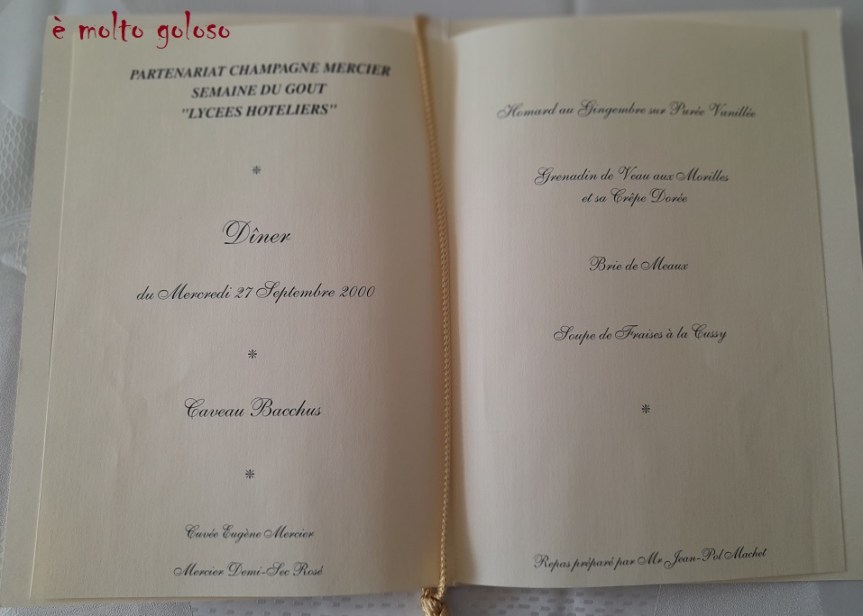 è molto goloso
PARTENARIAT CHAMPAGNE MERCIER
SEMAINE DU GOUT
"LYCEES HOTELIERS"
Dîner
du Mercredi 27 Septembre 2000
Caveau Bacchus
Cuvée Eugène Mercier
Mercier Demi-Sec Rosé
Homard au Gingembre sur Purée Vanillée
Grenadin de Veau aux Morilles
et sa Crêpe Dorée
Brie de Meaux
Soupe de Fraises à la Cussy
Repas préparé par Mr Jean-Pol Machet